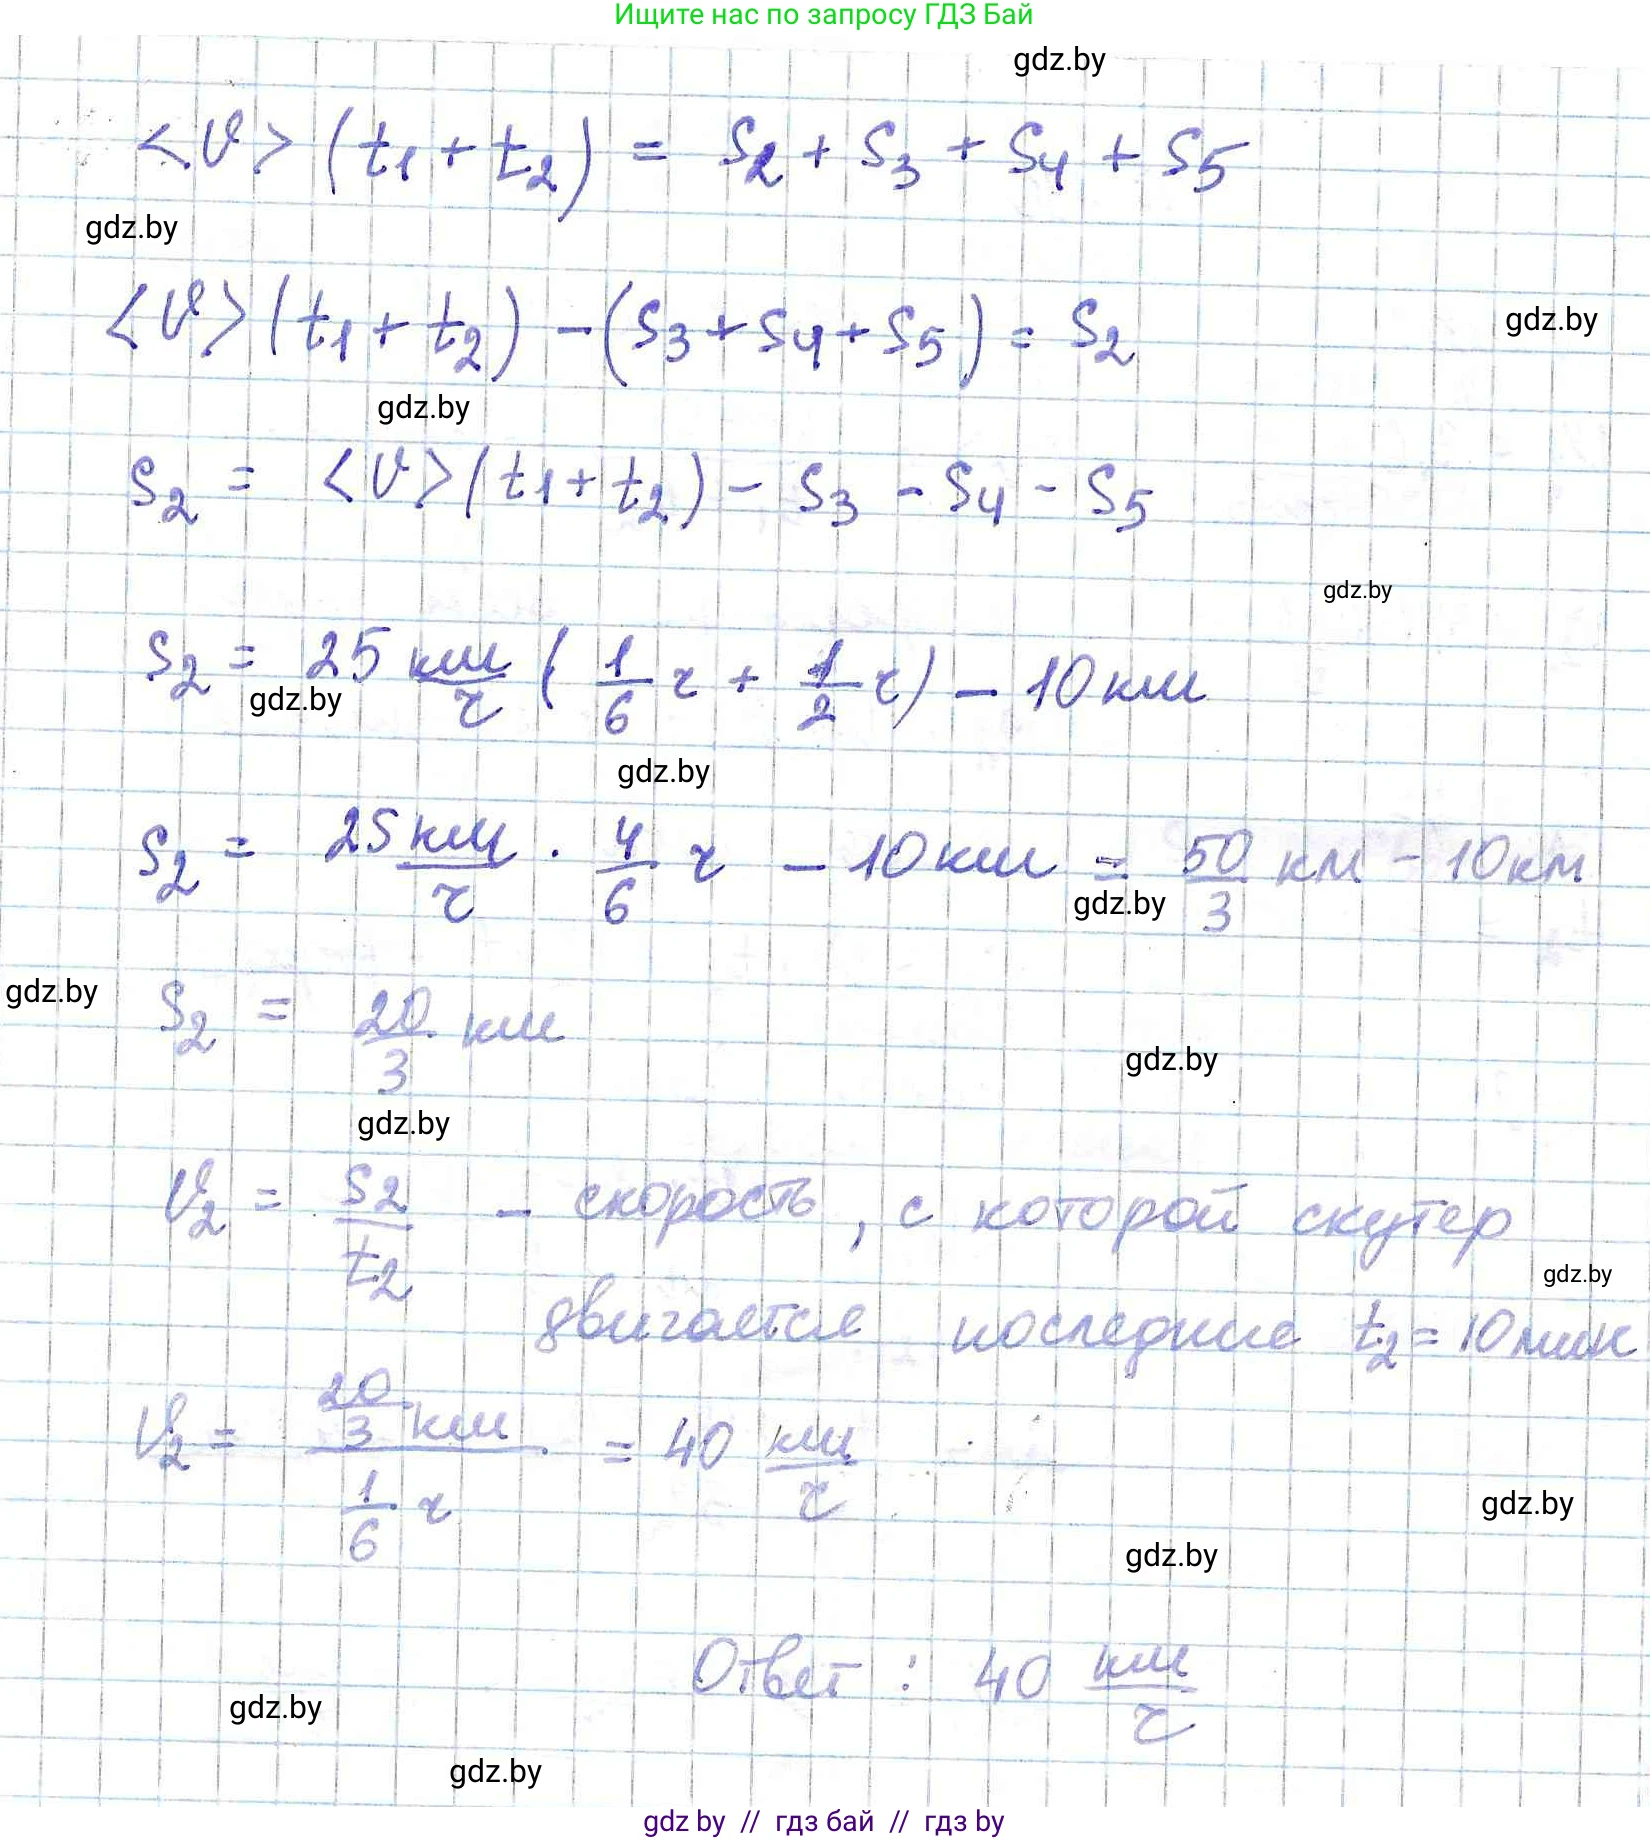 Ищите нас по запросу ГДЗ Бай
gdz.by
<v> (t1 + t2) = S2 + S3 + S4 + S5
gdz.by
<v> (t1 + t2) - (S3 + S4 + S5) = S2
gdz.by
gdz.by
S2 = <v> (t1 + t2) - S3 - S4 - S5
gdz.by
S2 = 25 км/ч (1/6 ч + 1/2 ч) - 10 км
gdz.by
gdz.by
S2 = 25 км/ч · 4/6 ч - 10 км = 50/3 км - 10 км
gdz.by
gdz.by
S2 = 20/3 км
gdz.by
gdz.by
v2 = S2/t2 - скорость, с которой скутер
gdz.by
двигается последние t2 = 10 мин
v2 = 20/3 км / 1/6 ч = 40 км/ч
gdz.by
gdz.by
Ответ : 40 км/ч
gdz.by
gdz.by
gdz by // гдз бай // гдз by